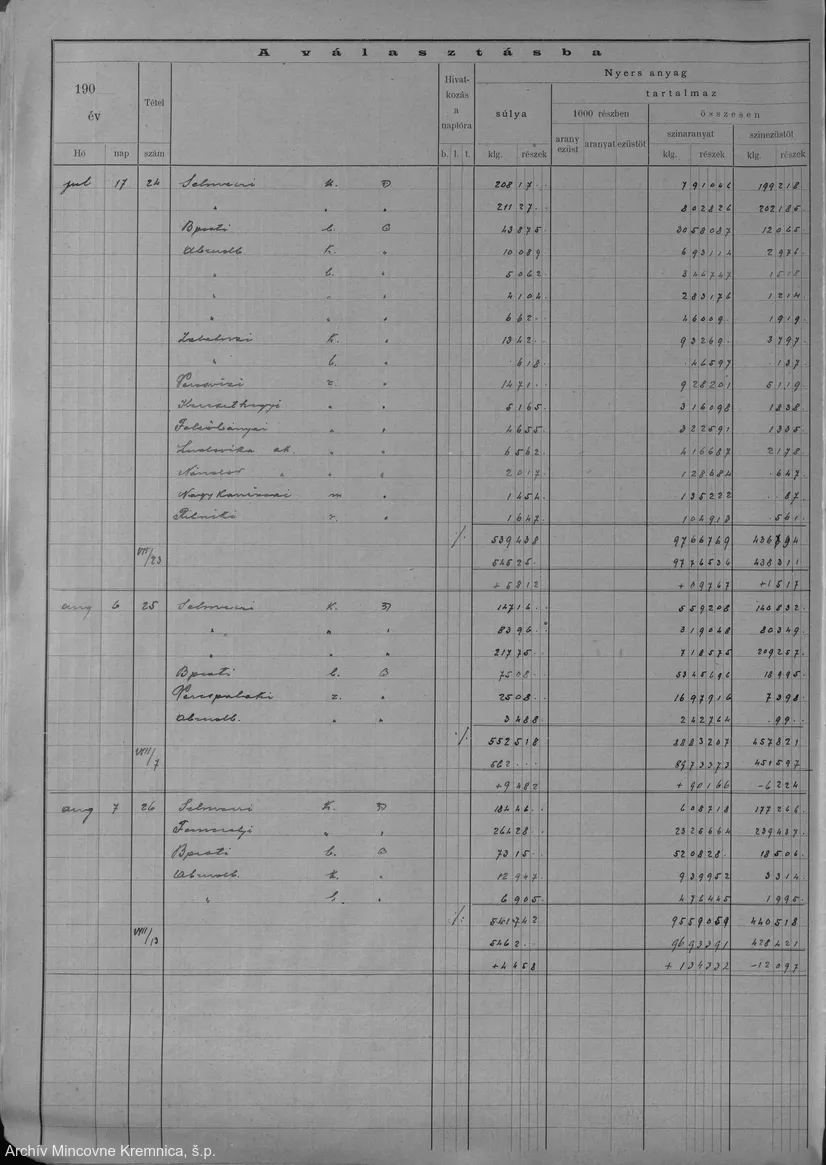 A választásba
190
év
Tétel
szám
Hivat-
kozás
a
naplóra
Nyers anyag
súlya
tartalmaz
1000 részben
összesen
arany
ezüst
aranyat
ezüstöt
színaranyat
színezüstöt
Hó
nap
b. l. t.
klg. részek
klg. részek
klg. részek
jul 17 24 Selmeczi K. 20817 791046 199218
" " " 21127 802826 202185
Bpesti b. 43875 3058087 12065
Abrudb. K. " 10089 693114 2976
" b. " 5062 344747 1518
" " " 4104 283176 1214
" " " 662 46009 1919
K. " 1342 93269 3797
" b. " 618 46597 137
Veresvizi z. " 1471 928201 5119
Kereszthegyi " " 5165 316098 1838
Felsőbányai " " 4655 322591 1335
Ludovika ak. " " 6562 416687 2178
Nándor " " " 2017 128684 647
Nagy Kanizsai m. " 1454 135222 87
r. " 1647 104913 561
./. 539438 9766769 436794
VII/23 54525 9776536 438311
+5812 +09767 +1517
aug 6 25 Selmeczi K. 14716 559208 140832
" " " 8396 319048 80349
" " " 21775 718575 209257
Bpesti b. 7508 5345696 18995
Verespataki z. " 2508 1697916 7398
Abrudb. " " 3488 242764 99
./. 552518 8883207 457821
VIII/7 562 8973373 451597
+9482 +90166 -6224
aug 7 26 Selmeczi K. 18446 608718 177266
" " 26428 2325664 239437
Bpesti b. 7315 520828 18506
Abrudb. K. " 12947 939952 3314
" b. " 6905 476445 1995
./. 541742 9559059 440518
VIII/13 5462 9693391 428421
+4458 +134332 -12097
Archív Mincovne Kremnica, š.p.